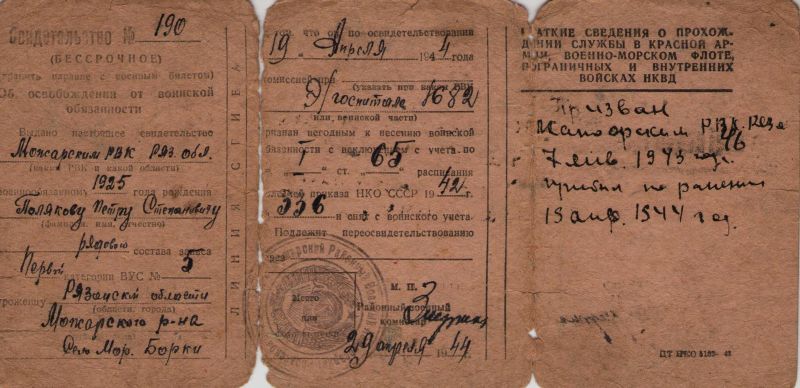 Свидетельство № 190
(БЕССРОЧНОЕ)
(хранить наравне с военным билетом)
Об освобождении от воинской
обязанности
Выдано настоящее свидетельство
Можарским РВК Ряз. обл.
(каким РВК и какой области)
военнообязанному 1925 года рождения
Полякову Петру Степановичу
(фамилия, имя, отчество)
рядового состава запаса
Первой категории ВУС № 5
уроженцу Рязанской области
(области, города)
Можарского р-на
Село Мор. Борки
ЛИНИЯ СГИБА
что он по освидетельствовании
19 Апреля 1944 года
комиссией при
(указать при каком РВК
Э/госпитале 1682
или воинской части)
признан негодным к несению воинской
обязанности с исключением с учета по
I " 65
" I " ст. " " расписания
приказа НКО СССР 1942 г.
336 и снят с воинского учета.
Подлежит переосвидетельствованию
М. П.
Место
для
Районный военный
комиссар
29 апреля 1944
КРАТКИЕ СВЕДЕНИЯ О ПРОХОЖ-
ДЕНИИ СЛУЖБЫ В КРАСНОЙ АР-
МИИ, ВОЕННО-МОРСКОМ ФЛОТЕ,
ПОГРАНИЧНЫХ И ВНУТРЕННИХ
ВОЙСКАХ НКВД
Призван
Можарским РВК Ряз.
7 янв. 1943 год.
прибыл по ранению
19 апр. 1944 год.